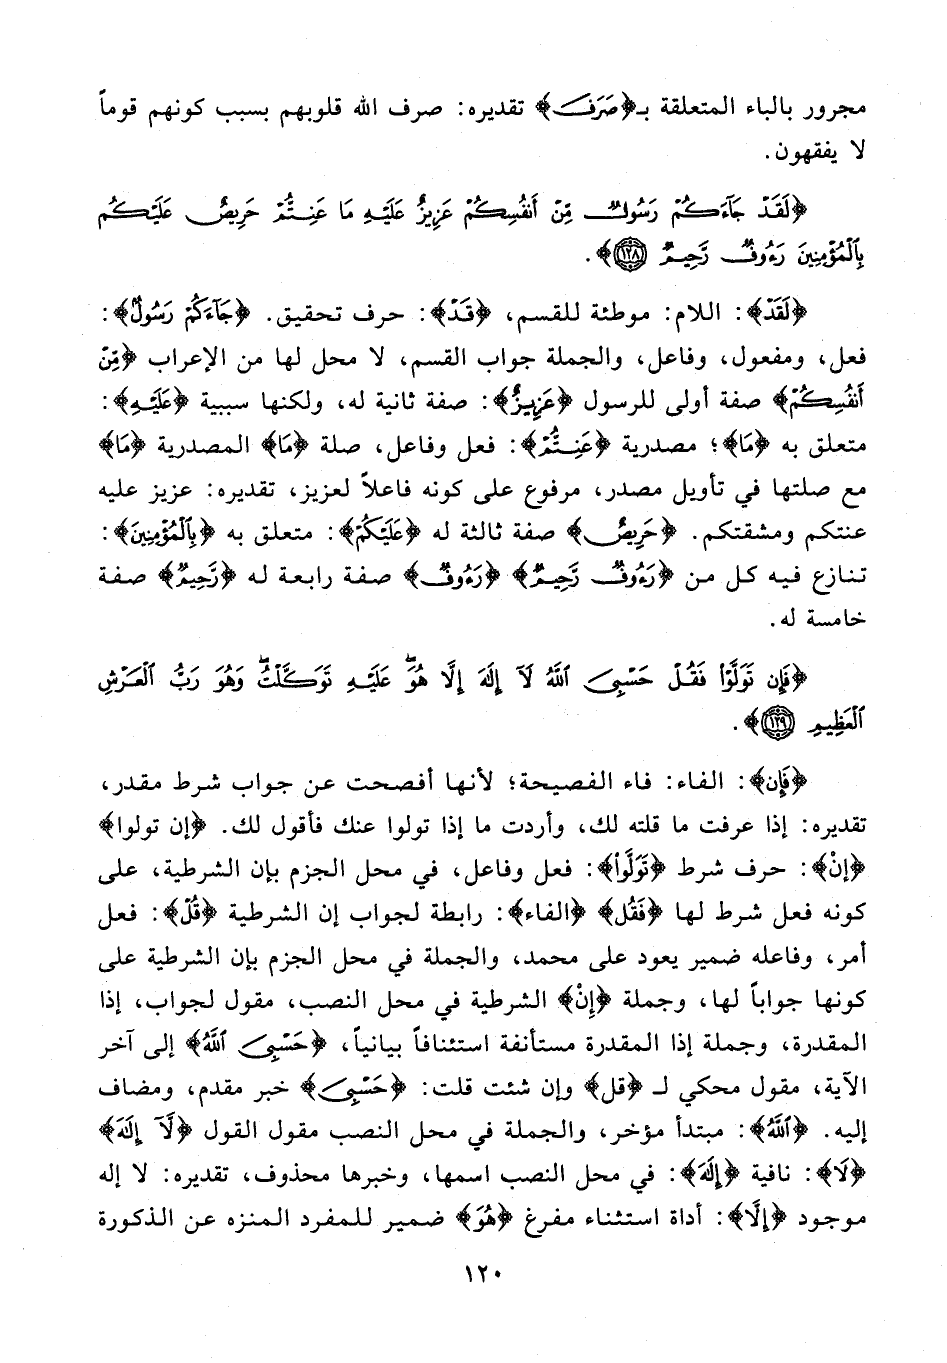 مجرور بالباء المتعلقة بـ﴿صَرَفَ﴾ تقديره: صرف الله قلوبهم بسبب كونهم قوماً
لا يفقهون.
﴿لَقَدْ جَآءَكُمْ رَسُولٌ مِّنْ أَنفُسِكُمْ عَزِيزٌ عَلَيْهِ مَا عَنِتُّمْ حَرِيصٌ عَلَيْكُم
بِٱلْمُؤْمِنِينَ رَءُوفٌ رَّحِيمٌ ۝١٢٨﴾.
﴿لَقَدْ﴾: اللام: موطئة للقسم، ﴿قَدْ﴾: حرف تحقيق. ﴿جَآءَكُمْ رَسُولٌ﴾:
فعل، ومفعول، وفاعل، والجملة جواب القسم، لا محل لها من الإعراب ﴿مِّنْ
أَنفُسِكُمْ﴾ صفة أولى للرسول ﴿عَزِيزٌ﴾: صفة ثانية له، ولكنها سببية ﴿عَلَيْهِ﴾:
متعلق به ﴿مَا﴾؛ مصدرية ﴿عَنِتُّمْ﴾: فعل وفاعل، صلة ﴿مَا﴾ المصدرية ﴿مَا﴾
مع صلتها في تأويل مصدر، مرفوع على كونه فاعلاً لعزيز، تقديره: عزيز عليه
عنتكم ومشقتكم. ﴿حَرِيصٌ﴾ صفة ثالثة له ﴿عَلَيْكُمْ﴾: متعلق به ﴿بِٱلْمُؤْمِنِينَ﴾:
تنازع فيه كل من ﴿رَءُوفٌ رَّحِيمٌ﴾ ﴿رَءُوفٌ﴾ صفة رابعة له ﴿رَّحِيمٌ﴾ صفة
خامسة له.
﴿فَإِن تَوَلَّوْا۟ فَقُلْ حَسْبِىَ ٱللَّهُ لَآ إِلَٰهَ إِلَّا هُوَ ۖ عَلَيْهِ تَوَكَّلْتُ ۖ وَهُوَ رَبُّ ٱلْعَرْشِ
ٱلْعَظِيمِ ۝١٢٩﴾.
﴿فَإِن﴾: الفاء: فاء الفصيحة؛ لأنها أفصحت عن جواب شرط مقدر،
تقديره: إذا عرفت ما قلته لك، وأردت ما إذا تولوا عنك فأقول لك. ﴿إن تولوا﴾
﴿إنْ﴾: حرف شرط ﴿تَوَلَّوْا۟﴾: فعل وفاعل، في محل الجزم بإن الشرطية، على
كونه فعل شرط لها ﴿فَقُل﴾ ﴿الفاء﴾: رابطة لجواب إن الشرطية ﴿قُلْ﴾: فعل
أمر، وفاعله ضمير يعود على محمد، والجملة في محل الجزم بإن الشرطية على
كونها جواباً لها، وجملة ﴿إِنْ﴾ الشرطية في محل النصب، مقول لجواب، إذا
المقدرة، وجملة إذا المقدرة مستأنفة استئنافاً بيانياً، ﴿حَسْبِىَ ٱللَّهُ﴾ إلى آخر
الآية، مقول محكي لـ ﴿قل﴾ وإن شئت قلت: ﴿حَسْبِىَ﴾ خبر مقدم، ومضاف
إليه. ﴿ٱللَّهُ﴾: مبتدأ مؤخر، والجملة في محل النصب مقول القول ﴿لَآ إِلَٰهَ﴾
﴿لَا﴾: نافية ﴿إِلَٰهَ﴾: في محل النصب اسمها، وخبرها محذوف، تقديره: لا إله
موجود ﴿إِلَّا﴾: أداة استثناء مفرغ ﴿هُوَ﴾ ضمير للمفرد المنزه عن الذكورة
١٢٠